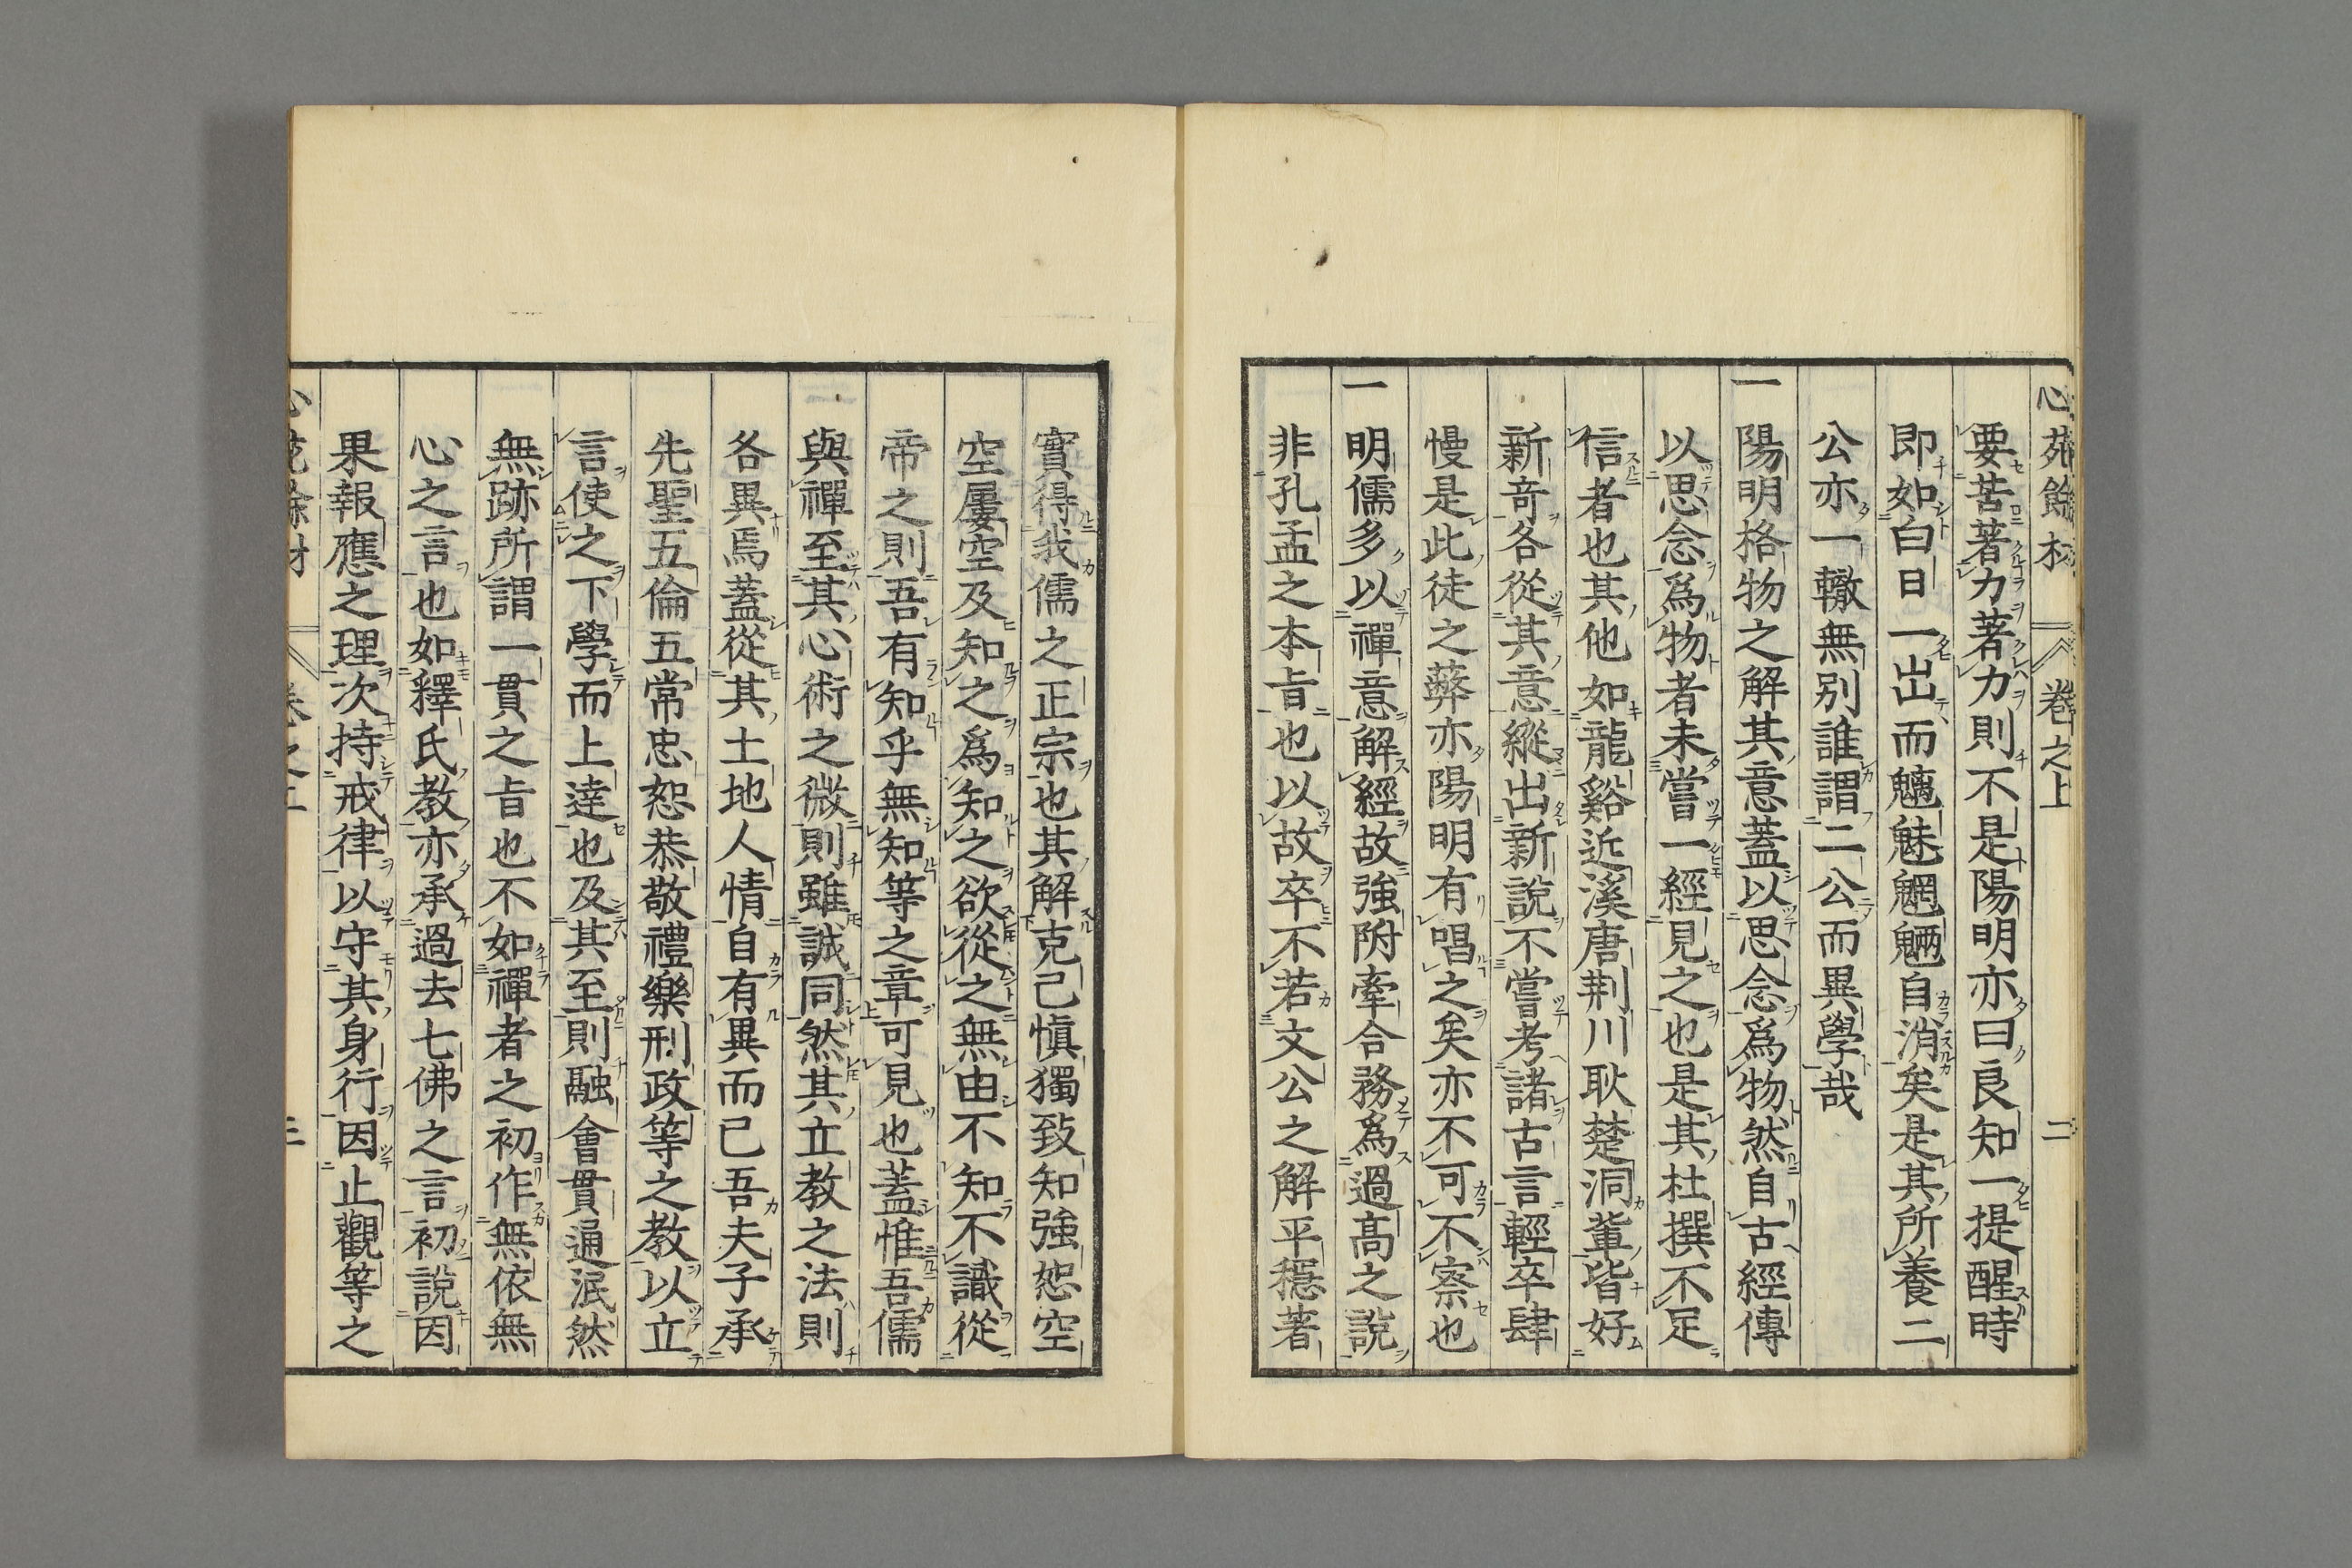 心苑餘材 卷之上 二
要苦著力著力則不是陽明亦曰良知一提醒時
即如白日一出而魑魅魍魎自消矣是其所養二
公亦一轍無別誰謂二公而異學哉
一陽明格物之解其意蓋以思念爲物然自古經傳
以思念爲物者未嘗一經見之也是其杜撰不足
信者也其他如龍谿近溪唐荆川耿楚洞輩皆好
新奇各從其意縱出新說不嘗考諸古言輕卒肆
慢是此徒之弊亦陽明有唱之矣亦不可不察也
一明儒多以禪意解經故強附牽合務爲過高之說
非孔孟之本旨也以故卒不若文公之解平穩著
實得我儒之正宗也其解克己愼獨致知強恕空
空屢空及知之爲知之欲從之無由不知不識從
帝之則吾有知乎無知等之章可見也蓋惟吾儒
與禪至其心術之微則雖誠同然其立教之法則
各異焉蓋從其土地人情自有異而已吾夫子承
先聖五倫五常忠恕恭敬禮樂刑政等之教以立
言使之下學而上達也及其至則融會貫通泯然
無跡所謂一貫之旨也不如禪者之初作無依無
心之言也如釋氏教亦承過去七佛之言初說因
果報應之理次持戒律以守其身行因止觀等之